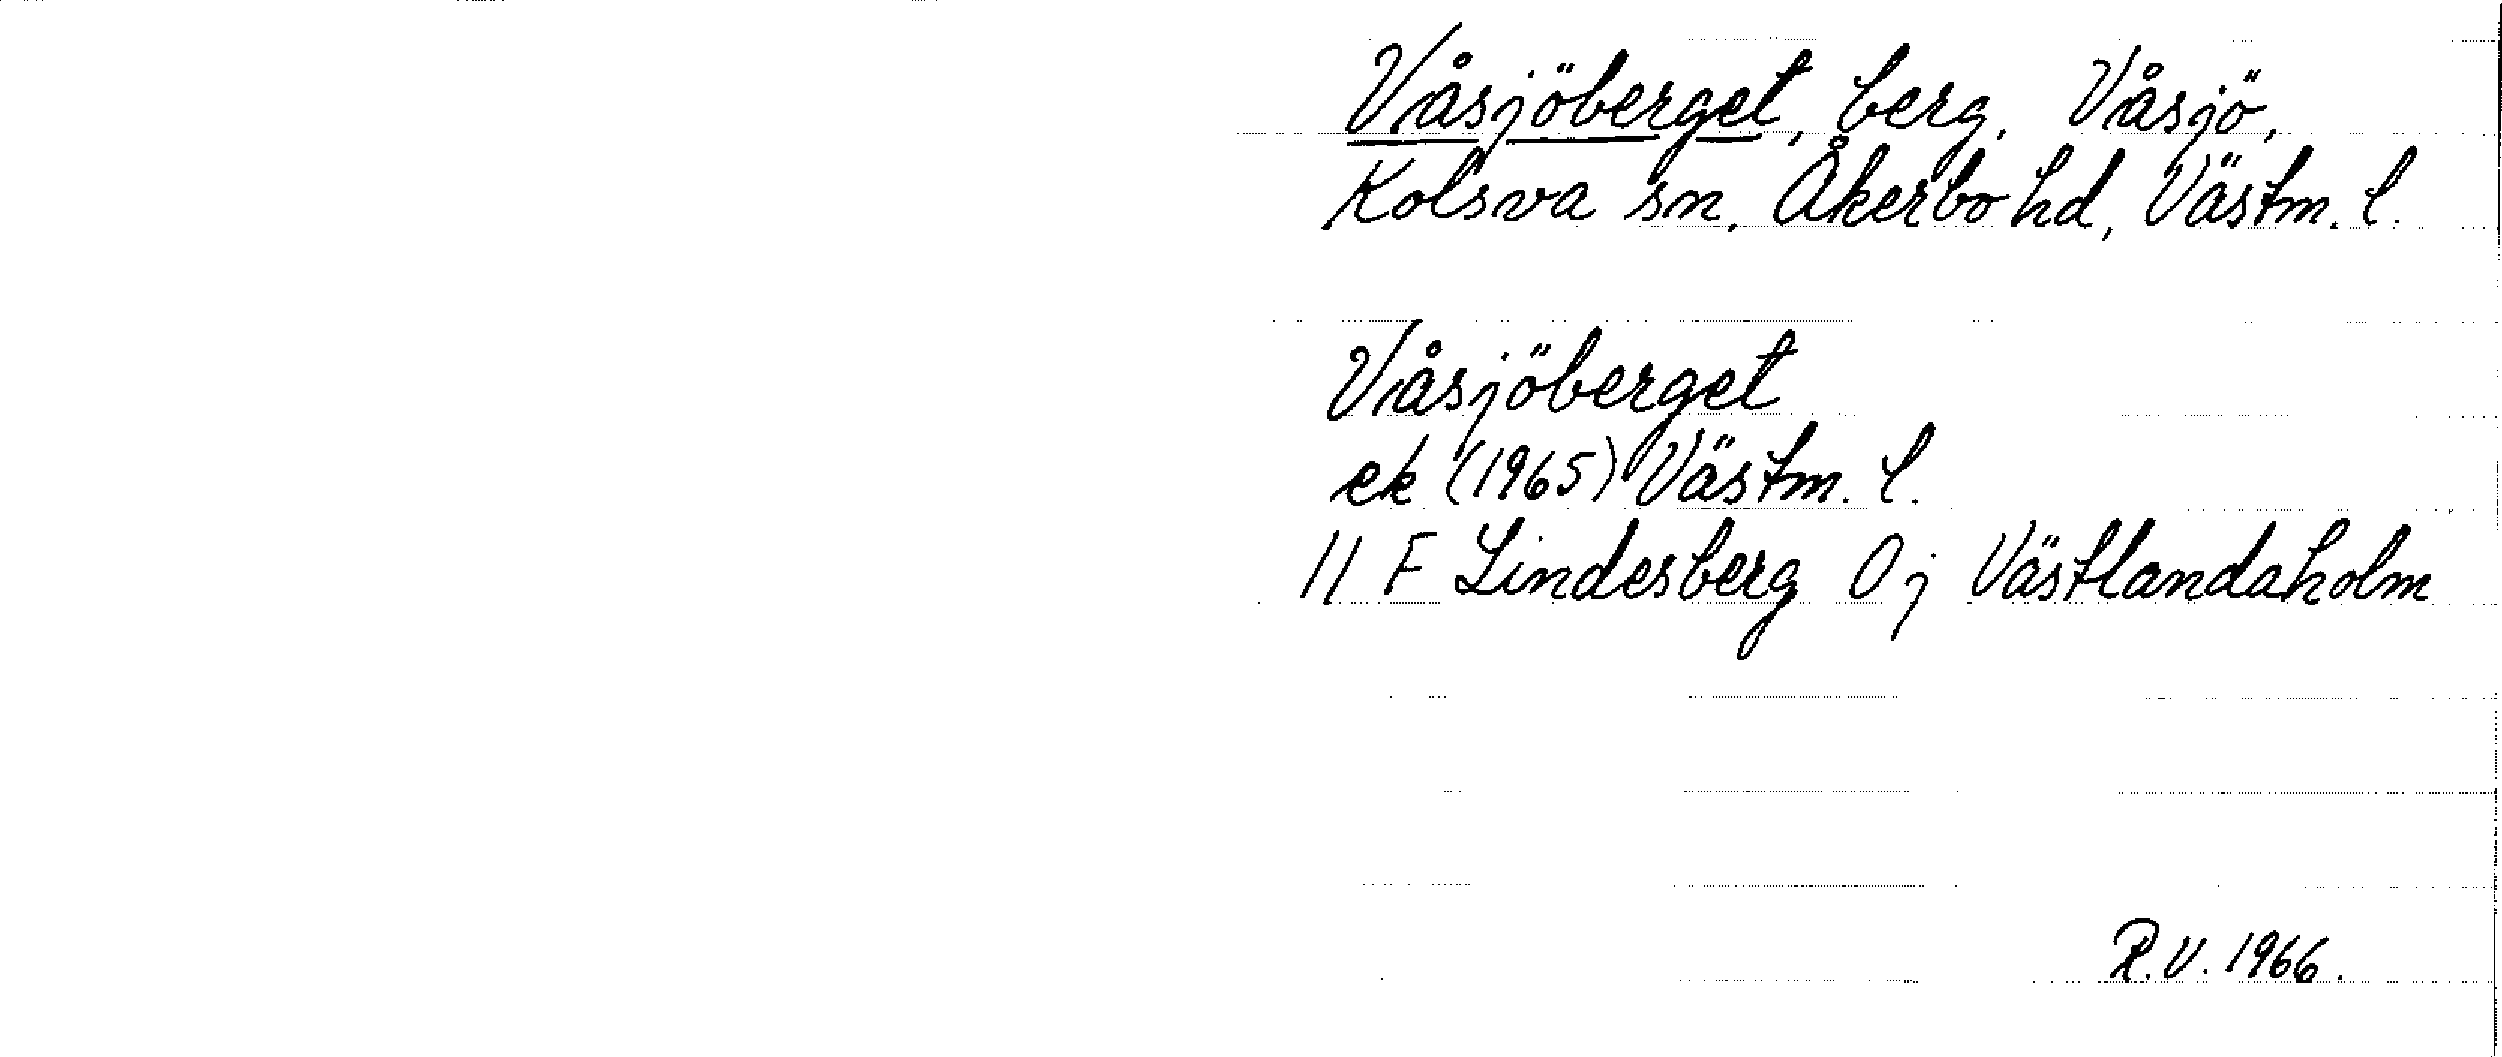 Våsjöberget, berg, Våsjö,
Kolsva sn, Åkerbo hd, Västm. l.
Våsjöberget
ek (1965) Västm. l.
11 F Lindesberg 0 j Västlandaholm
R.V. 1966.